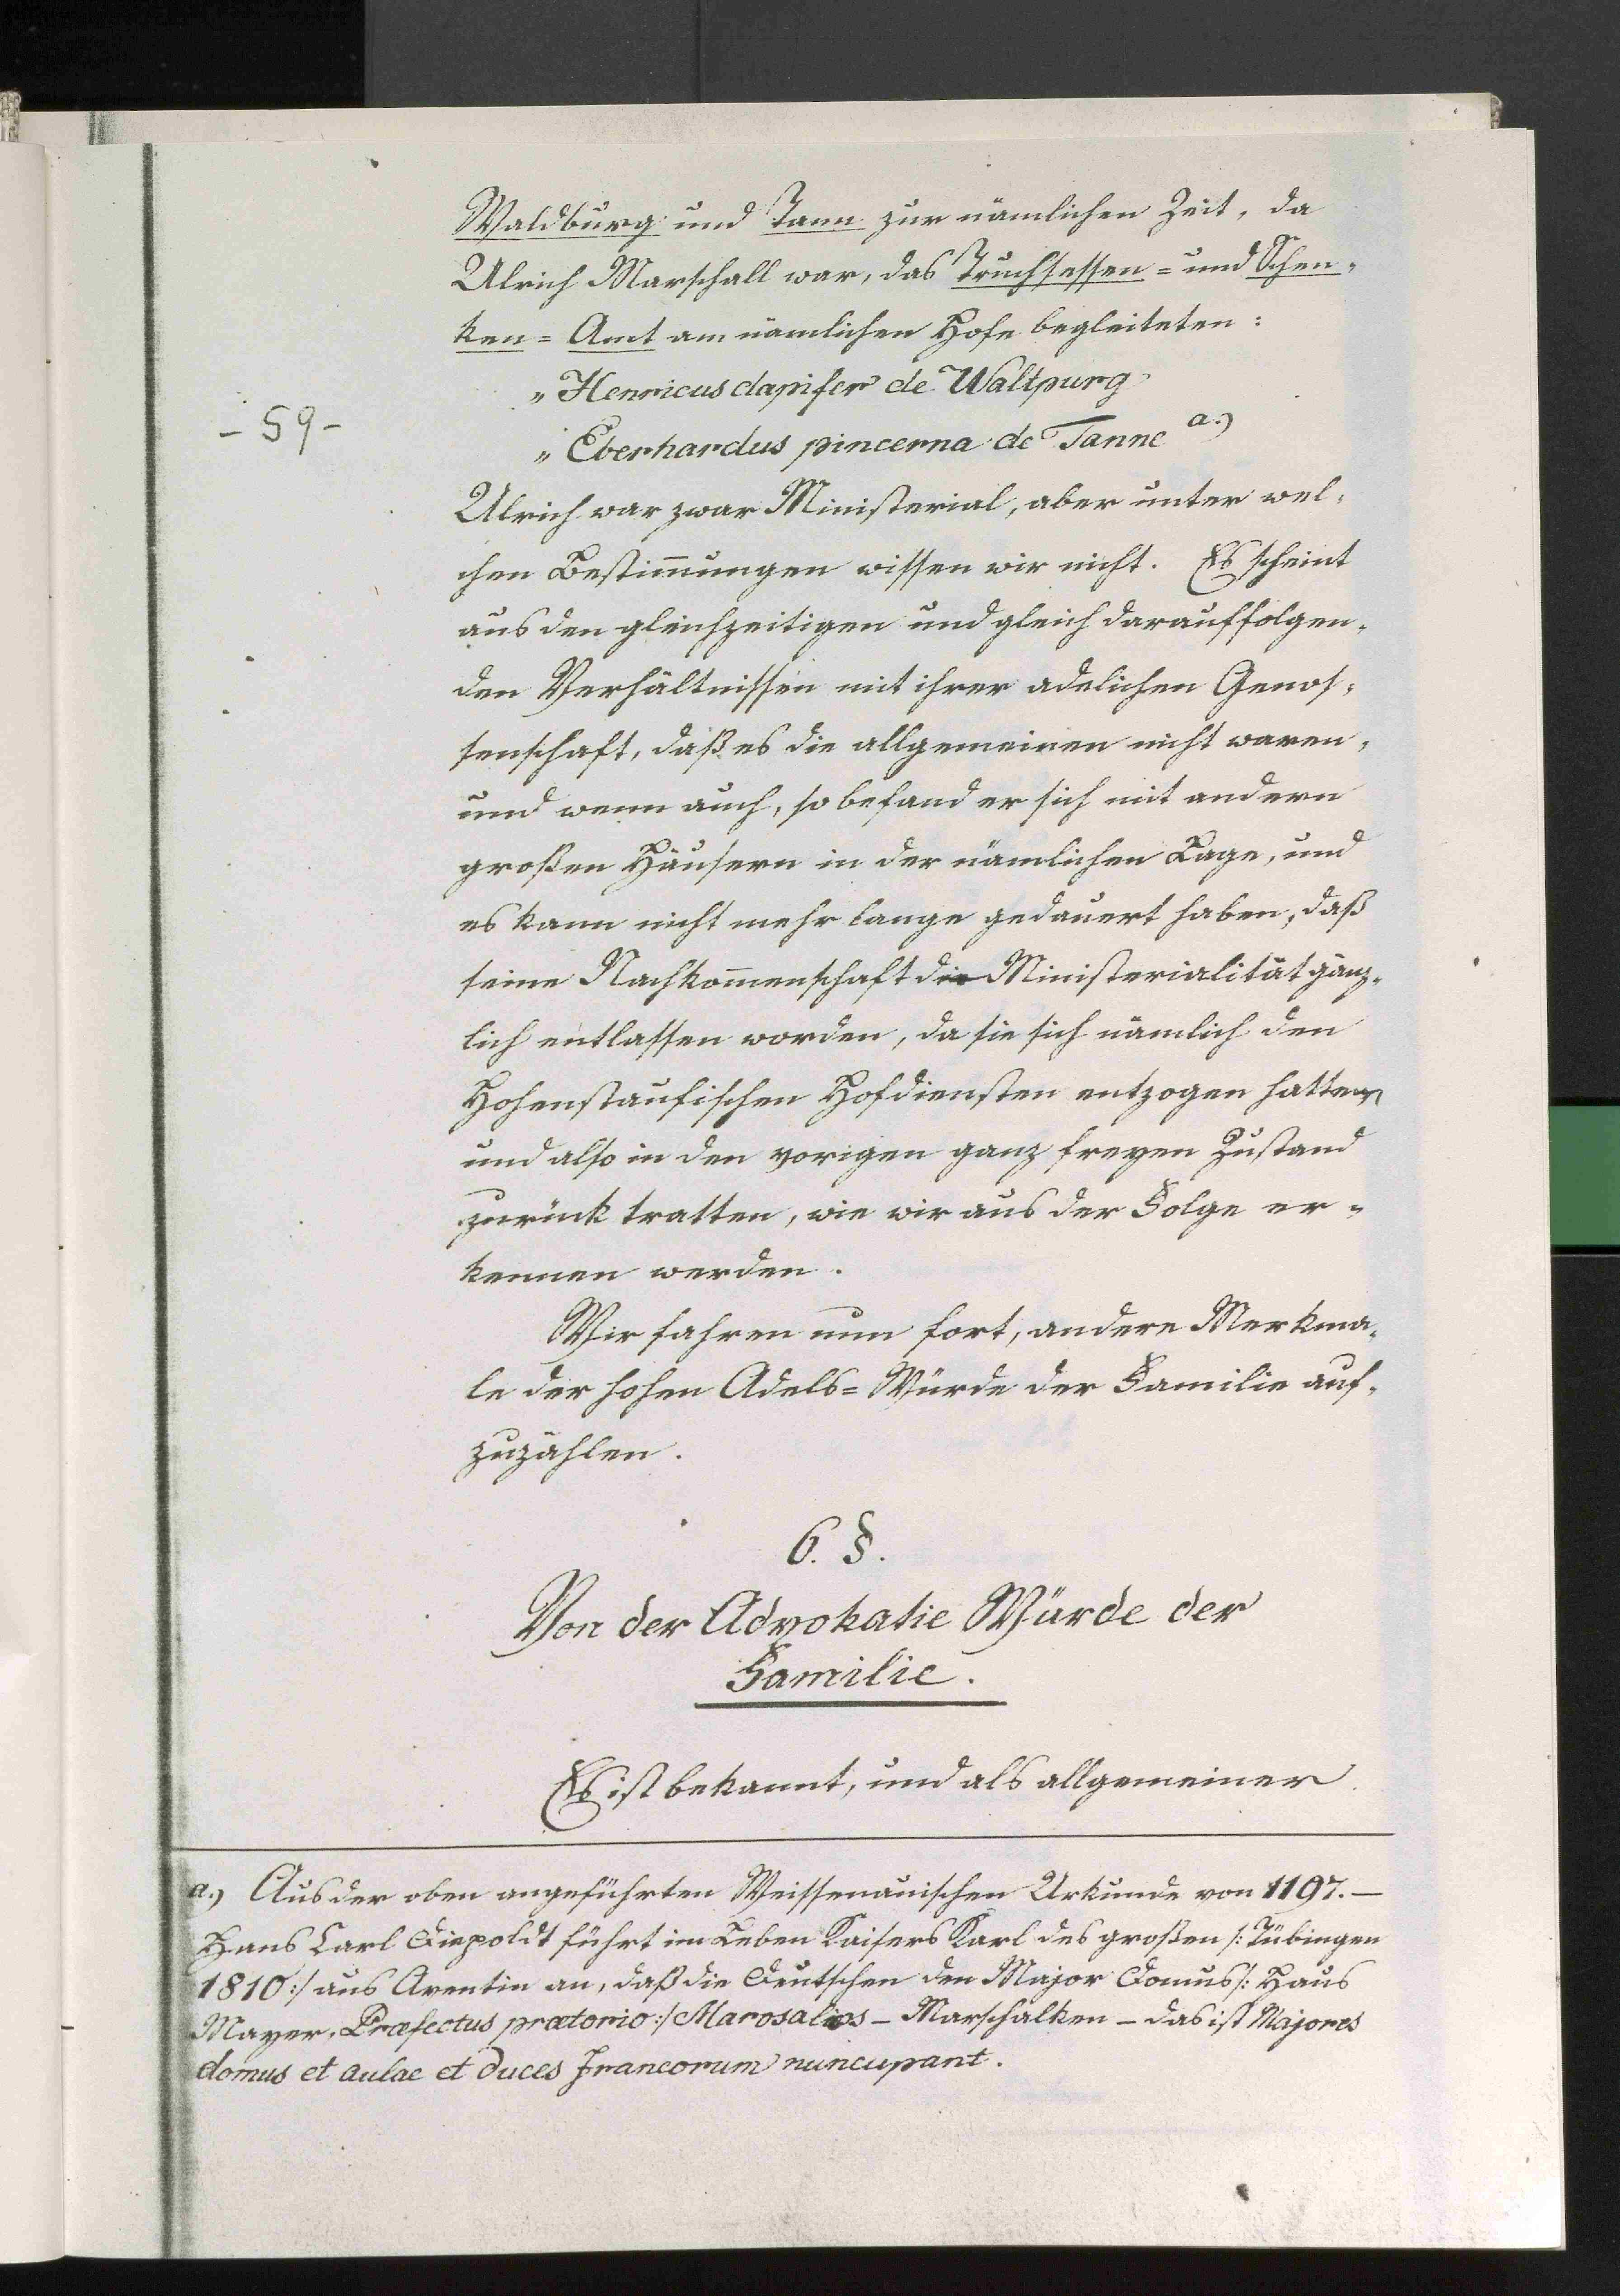 Waldburg und Tann zur nämlichen Zeit, da
Ulrich Marschall war, das Truchsessen= und Schen-
ken= Amt am nämlichen Hofe begleiteten:
„ Henricus dapifer de Waltpurg
- 59 -
„ Eberhardus pincerna de Tanne a.)
Ulrich war zwar Ministerial, aber unter wel-
chen Bestim̅ungen wissen wir nicht. Es scheint
aus den gleichzeitigen und gleich darauffolgen-
den Verhältnissen mit ihrer adelichen Genos-
senschaft, daß es die allgemeinen nicht waren,
und wenn auch, so befand er sich mit andern
großen Häusern in der nämlichen Lage, und
es kann nicht mehr lange gedauert haben, daß
seine Nachkom̅enschaft die Ministerialität gänz-
lich entlassen worden, da sie sich nämlich den
Hohenstaufischen Hofdiensten entzogen hatten
und also in den vorigen ganz freyen Zustand
zurück tratten, wie wir aus der Folge er-
kennen werden.
Wir fahren nun fort, andere Merkma-
le der hohen Adels= Würde der Familie auf-
zuzählen.
6. §.
Von der Advokatie Würde der
Familie.
Es ist bekannt, und als allgemeiner
a.) Aus der oben angeführten Weissenauischen Urkunde von 1197. —
Hans Carl Diepoldt führt im Leben Kaisers Karl des großen /: Tübingen
1810 :/ aus Aventin an, daß die Deutschen den Major Domus /: Haus
Mayer, Præfectus prætorio :/ Marosalios — Marschalken — das ist Majores
domus et aulae et duces Francorum nuncupant.